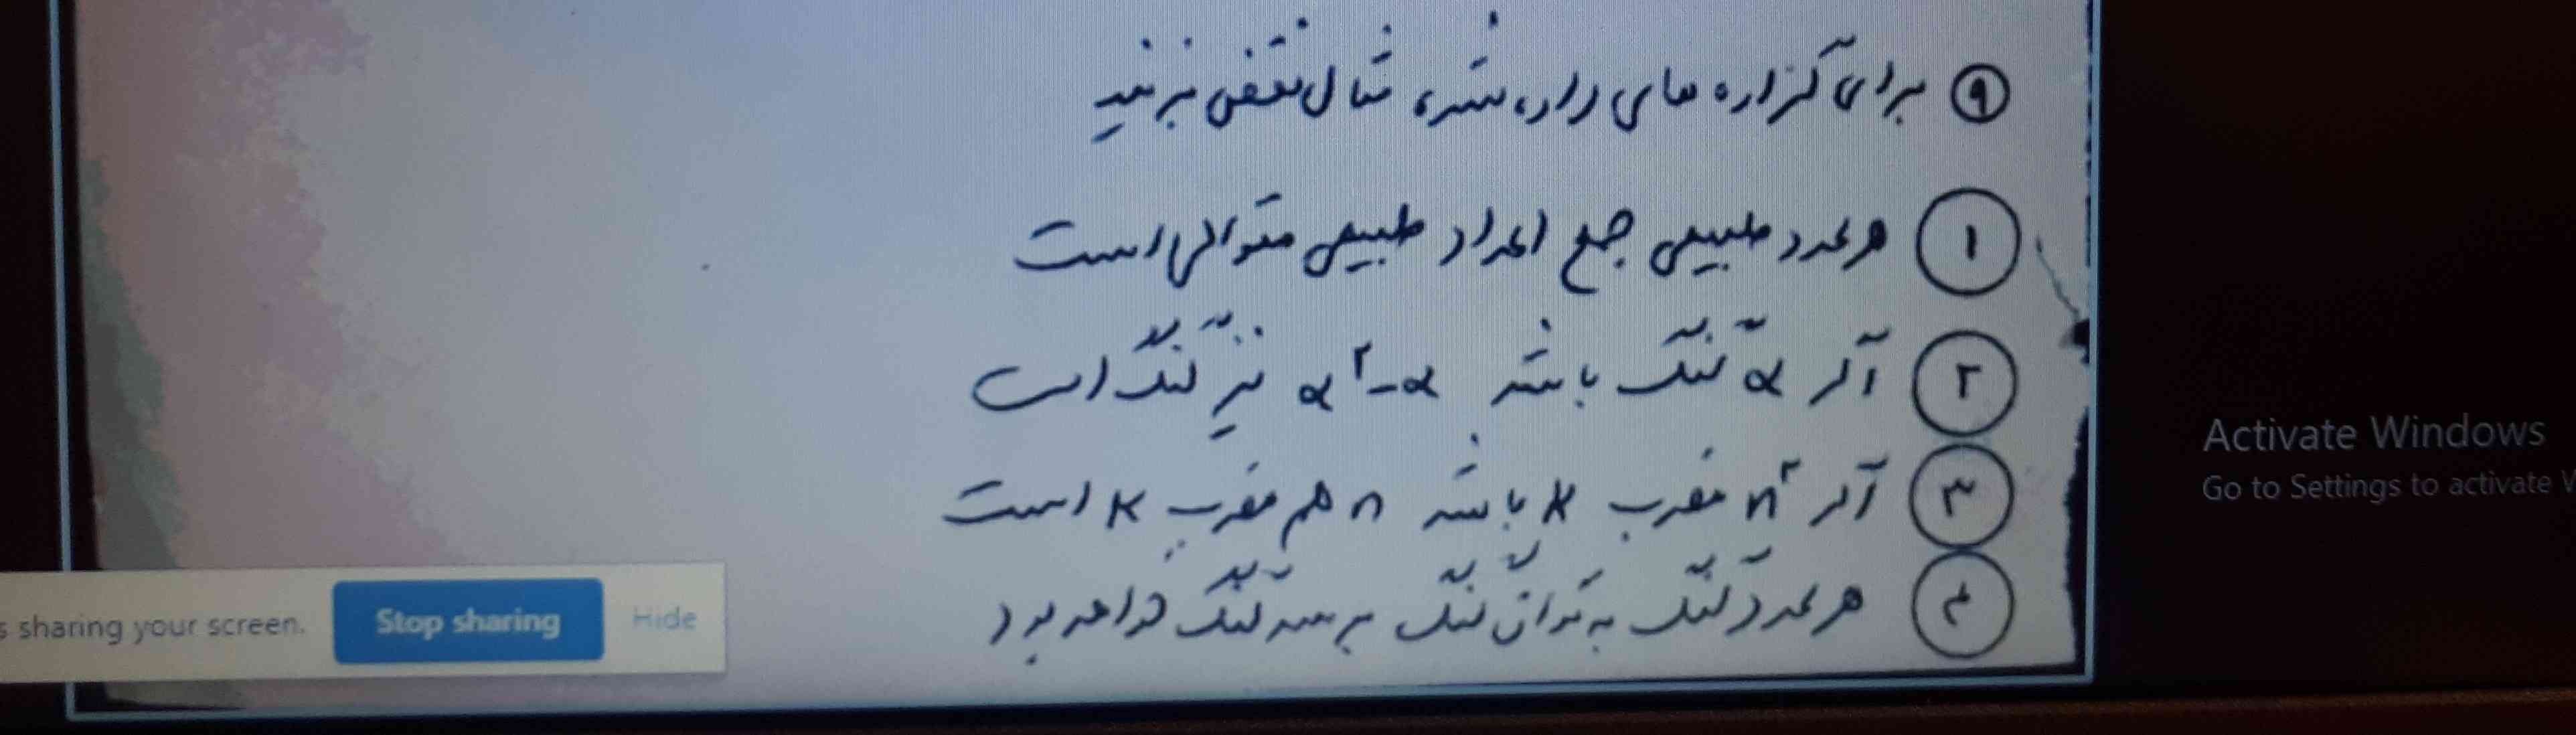 ۹ برای گزاره های داده شده مثال نقض بزنید
۱ هر عدد طبیعی جمع اعداد طبیعی متوالی است
۲ اگر α گنگ باشد α²-α نیز گنگ است
۳ اگر n² مضرب k باشد n هم مضرب k است
۴ هر عدد گنگ به توان گنگ برسد گنگ خواهد بود
s sharing your screen. Stop sharing Hide
Activate Windows
Go to Settings to activate W